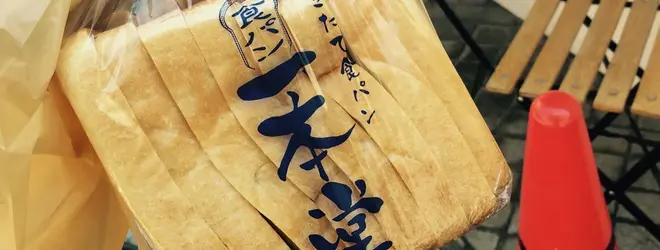 食パン
一本堂
たて食パン